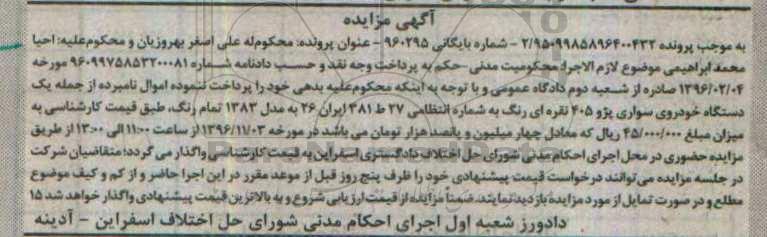 آگهی مزایده
به موجب پرونده ۲/۹۵۰۹۹۸۵۸۹۶۴۰۰۴۳۲ - شماره بایگانی ۹۶۰۲۹۵ - عنوان پرونده: محکوم‌له علی اصغر بهروزیان و محکوم‌علیه: احیا
محمد ابراهیمی موضوع لازم الاجرا: محکومیت مدنی -حکم به پرداخت وجه نقد و حسب دادنامه شماره ۹۶۰۹۹۷۵۸۵۳۲۰۰۰۸۱ مورخه
۱۳۹۶/۰۲/۰۴ صادره از شعبه دوم دادگاه عمومی و با توجه به اینکه محکوم‌علیه بدهی خود را پرداخت ننموده اموال نامبرده از جمله یک
دستگاه خودروی سواری پژو ۴۰۵ نقره ای رنگ به شماره انتظامی ۲۷ ط ۴۸۱ ایران ۲۶ به مدل ۱۳۸۳ تمام رنگ، طبق قیمت کارشناسی به
میزان مبلغ ۴۵/۰۰۰/۰۰۰ ریال که معادل چهار میلیون و پانصد هزار تومان می باشد در مورخه ۱۳۹۶/۱۱/۰۳ از ساعت ۱۱:۰۰ الی ۱۲:۰۰ از طریق
مزایده حضوری در محل اجرای احکام مدنی شورای حل اختلاف دادگستری اسفراین به قیمت کارشناسی واگذار می گردد؛ متقاضیان شرکت
در جلسه مزایده می توانند درخواست قیمت پیشنهادی خود را ظرف پنج روز قبل از موعد مقرر در این اجرا حاضر و از کم و کیف موضوع
مطلع و در صورت تمایل از مورد مزایده بازدید نمایند. ضمناً مزایده از قیمت ارزیابی شروع و به بالاترین قیمت پیشنهادی واگذار خواهد شد ۱۵
دادورز شعبه اول اجرای احکام مدنی شورای حل اختلاف اسفراین - آدینه